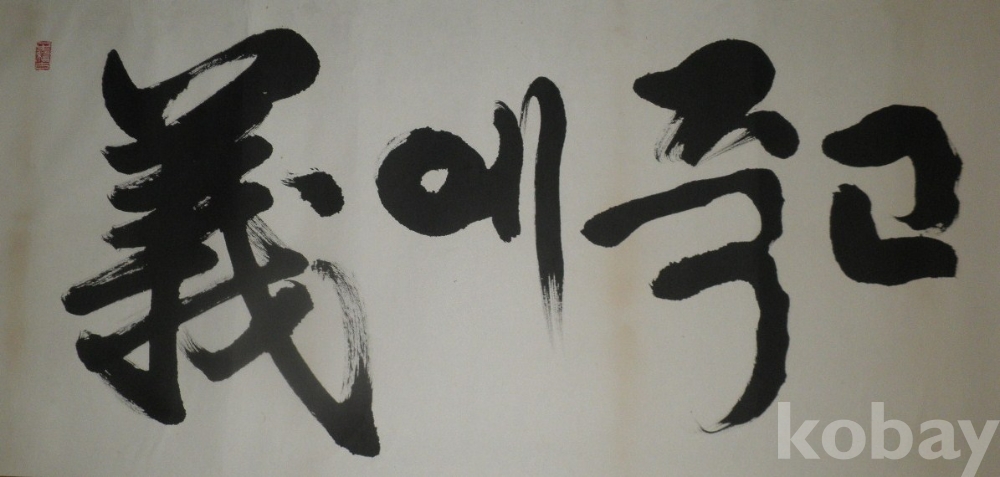 義에죽고